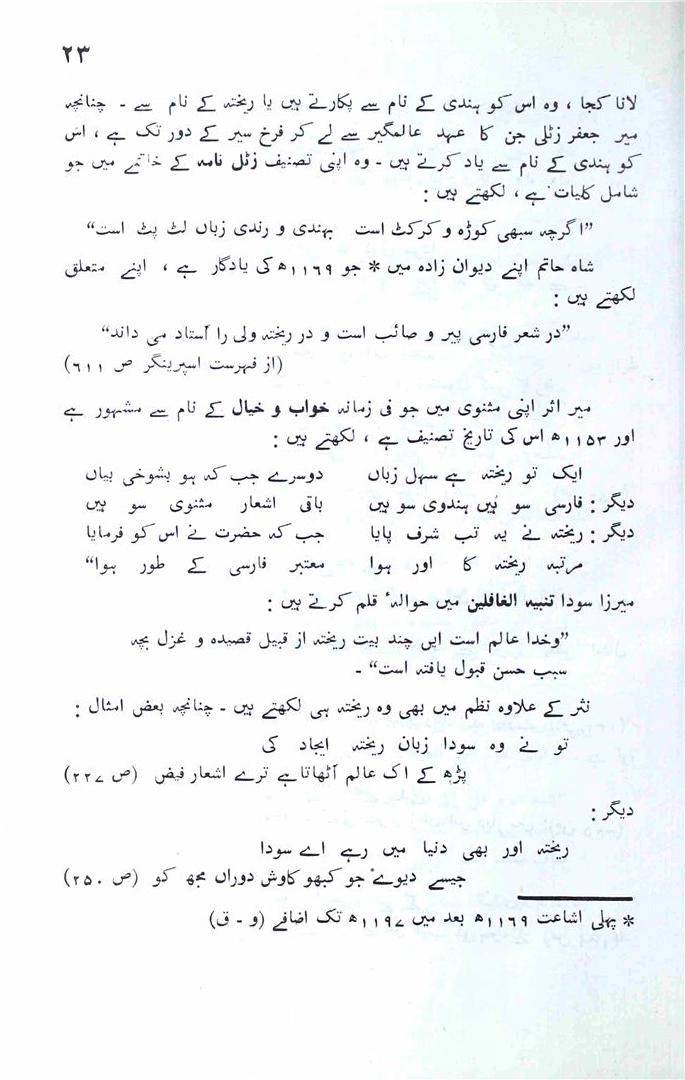 ۲۳
لانا کجا ، وہ اس کو ہندی کے نام سے پکارتے ہیں یا ریختہ کے نام سے ۔ چنانچہ
میر جعفر زٹلی جن کا عہد عالمگیر سے لے کر فرخ سیر کے دور تک ہے ، اس
کو ہندی کے نام سے یاد کرتے ہیں ۔ وہ اپنی تصنیف زٹل نامہ کے خاتمے میں جو
شامل کلیات ہے ، لکھتے ہیں :
”اگرچہ سبھی کوڑہ و کرکٹ است بہندی و رندی زباں لٹ پٹ است“
شاہ حاتم اپنے دیوان زادہ میں * جو ۱۱۶۹ھ کی یادگار ہے ، اپنے متعلق
لکھتے ہیں :
”در شعر فارسی پیر و صائب است و در ریختہ ولی را آستاد می داند“
(از فہرست اسپرینگر ص ۶۱۱)
میر اثر اپنی مثنوی میں جو فی زمانہ خواب و خیال کے نام سے مشہور ہے
اور ۱۱۵۳ھ اس کی تاریخ تصنیف ہے ، لکھتے ہیں :
ایک تو ریختہ ہے سہل زباں دوسرے جب کہ ہو بشوخی بیاں
دیگر : فارسی سو ہیں ہندوی سو ہیں باقی اشعار مثنوی سو ہیں
دیگر : ریختہ نے یہ تب شرف پایا جب کہ حضرت نے اس کو فرمایا
مرتبہ ریختہ کا اور ہوا معتبر فارسی کے طور ہوا“
میرزا سودا تنبیہ الغافلین میں حوالۂ قلم کرتے ہیں :
”وخدا عالم است ایں چند بیت ریختہ از قبیل قصیدہ و غزل بچہ
سبب حسن قبول یافتہ است“ ۔
نثر کے علاوہ نظم میں بھی وہ ریختہ ہی لکھتے ہیں ۔ چنانچہ بعض امثال :
تو نے وہ سودا زبان ریختہ ایجاد کی
پڑھ کے اک عالم آٹھاتا ہے ترے اشعار فیض (ص ۲۲۷)
دیگر :
ریختہ اور بھی دنیا میں رہے اے سودا
جیسے دیوے جو کبھو کاوش دوراں مجھ کو (ص ۲۵۰)
* پہلی اشاعت ۱۱۶۹ھ بعد میں ۱۱۹۷ھ تک اضافے (و ۔ ق)